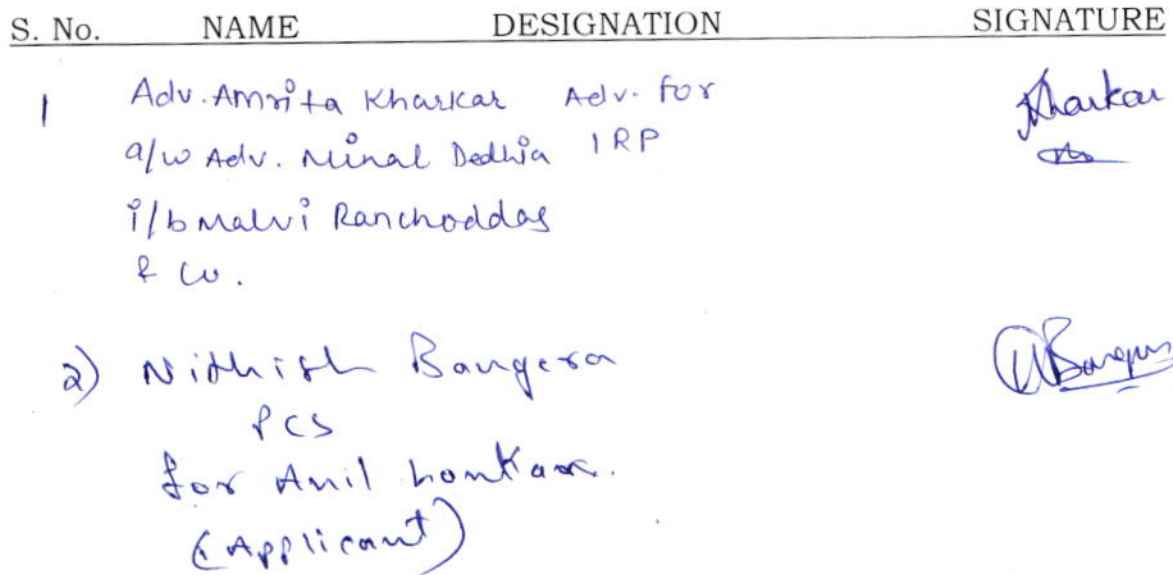 S. No. NAME DESIGNATION SIGNATURE
1 Adv. Amrita Kharkar Adv. for Kharkar
a/w Adv. Minal Dedhia IRP
i/b Malvi Ranchoddas
& Co.
2) Nithish Bangera
PCS
for Anil Lonkar.
(Applicant)